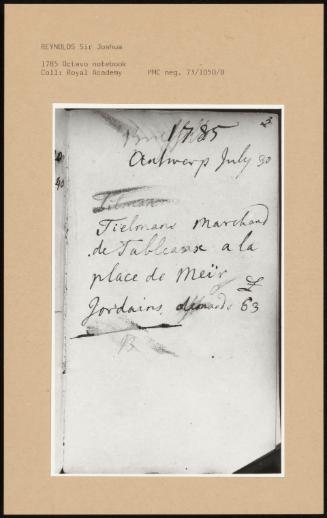 REYNOLDS Sir Joshua
1785 Octavo notebook
Coll: Royal Academy PMC neg. 73/1050/8
1785
Antwerp July 30
Tilman
Tielmans Marchand
de Tableaux a la
place de Meïr
Jordains, demands £ 63